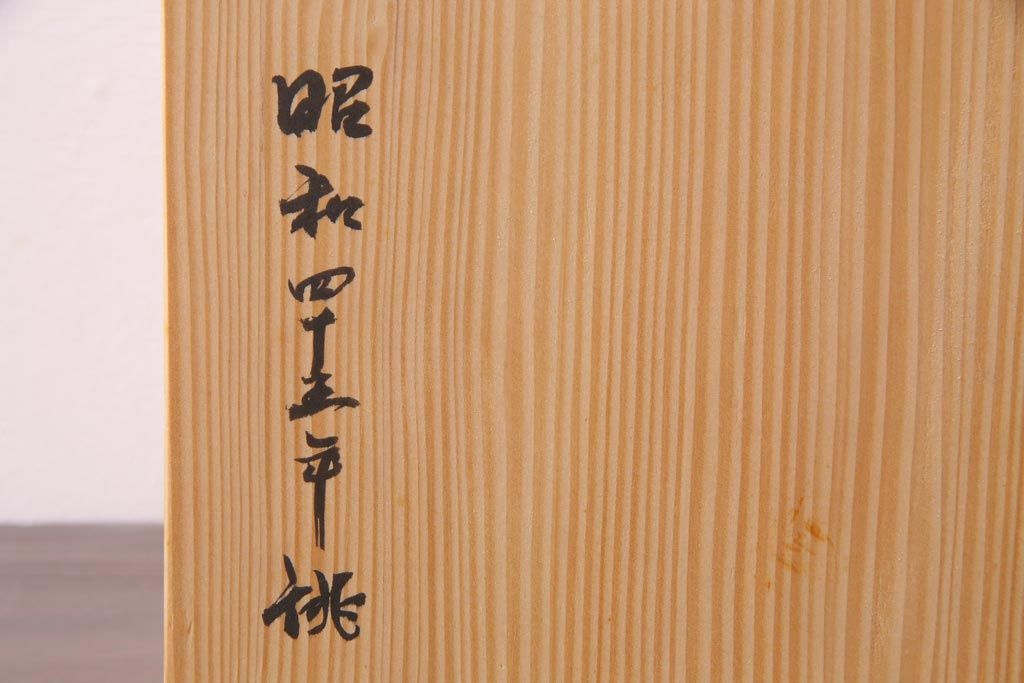 昭和四十五年桃